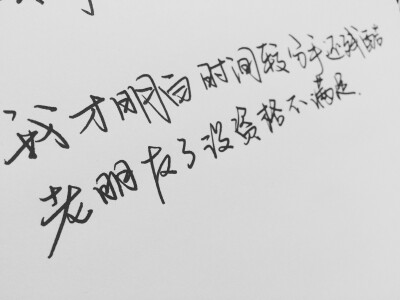 我才明白时间较分手还残酷
老朋友了没资格不满足.